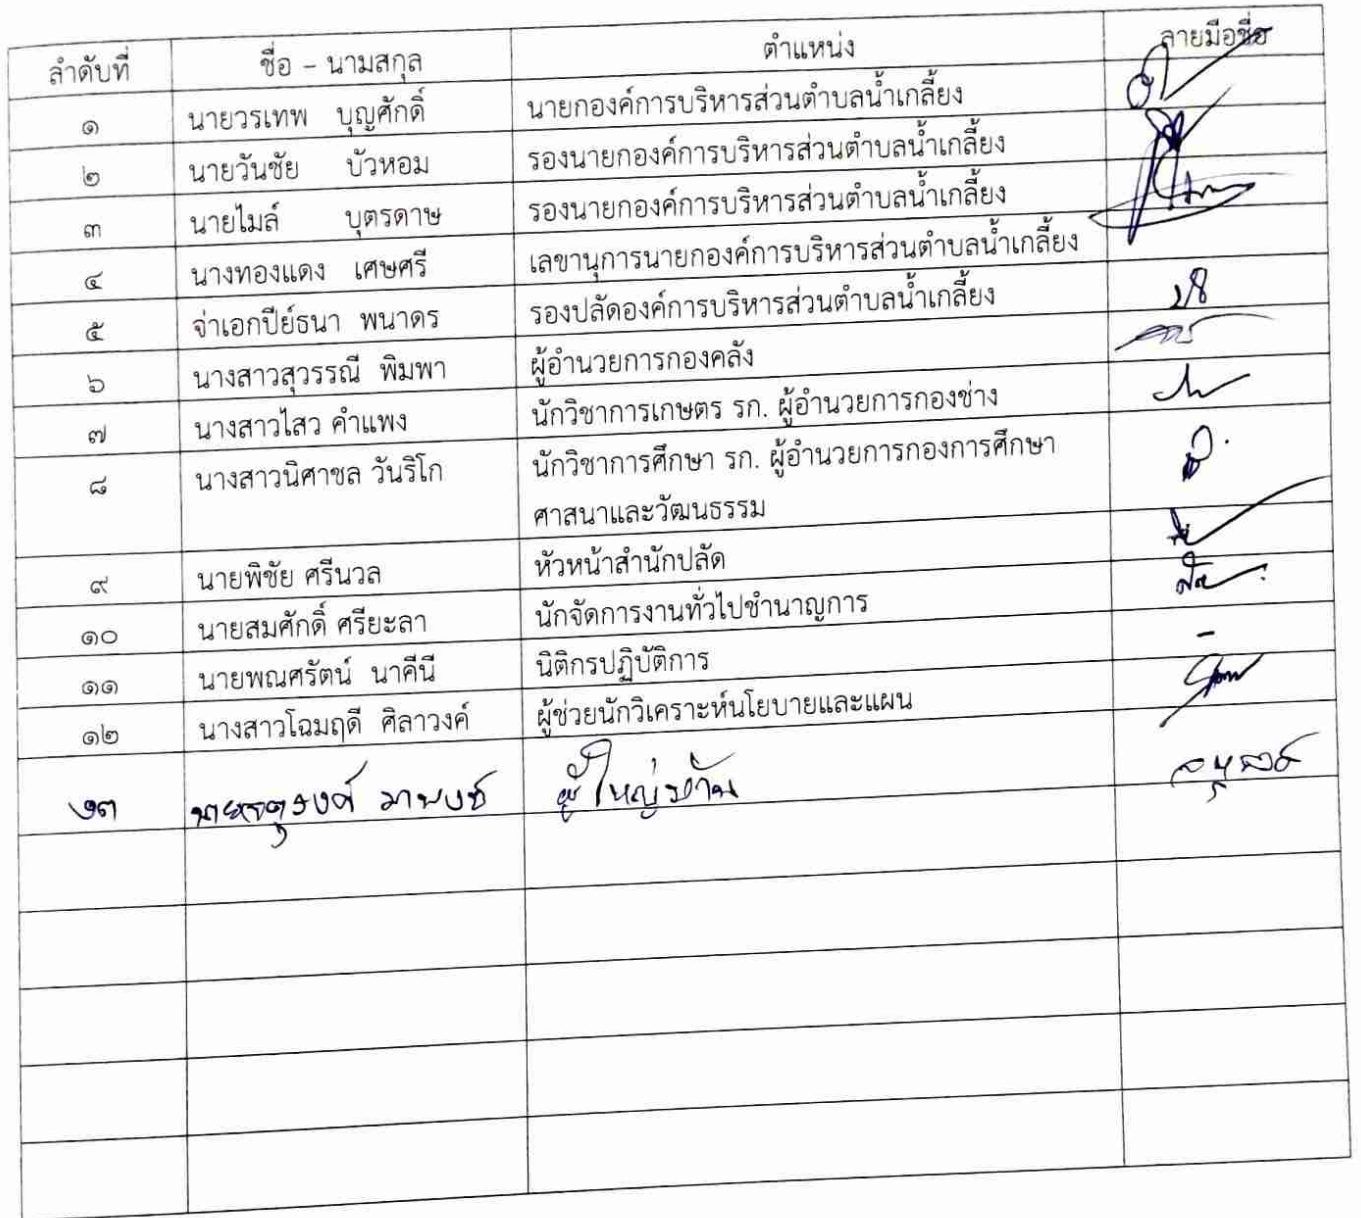 ลำดับที่ ชื่อ – นามสกุล ตำแหน่ง ลายมือชื่อ
๑ นายวรเทพ บุญศักดิ์ นายกองค์การบริหารส่วนตำบลน้ำเกลี้ยง
๒ นายวันชัย บัวหอม รองนายกองค์การบริหารส่วนตำบลน้ำเกลี้ยง
๓ นายไมล์ บุตรดาษ รองนายกองค์การบริหารส่วนตำบลน้ำเกลี้ยง
๔ นางทองแดง เศษศรี เลขานุการนายกองค์การบริหารส่วนตำบลน้ำเกลี้ยง
๕ จ่าเอกปีย์ธนา พนาดร รองปลัดองค์การบริหารส่วนตำบลน้ำเกลี้ยง
๖ นางสาวสุวรรณี พิมพา ผู้อำนวยการกองคลัง
๗ นางสาวไสว คำแพง นักวิชาการเกษตร รก. ผู้อำนวยการกองช่าง
๘ นางสาวนิศาชล วันริโก นักวิชาการศึกษา รก. ผู้อำนวยการกองการศึกษา
ศาสนาและวัฒนธรรม
๙ นายพิชัย ศรีนวล หัวหน้าสำนักปลัด
๑๐ นายสมศักดิ์ ศรียะลา นักจัดการงานทั่วไปชำนาญการ
๑๑ นายพณศรัตน์ นาคีนี นิติกรปฏิบัติการ -
๑๒ นางสาวโฉมฤดี ศิลาวงค์ ผู้ช่วยนักวิเคราะห์นโยบายและแผน
๑๓ ผู้ใหญ่บ้าน